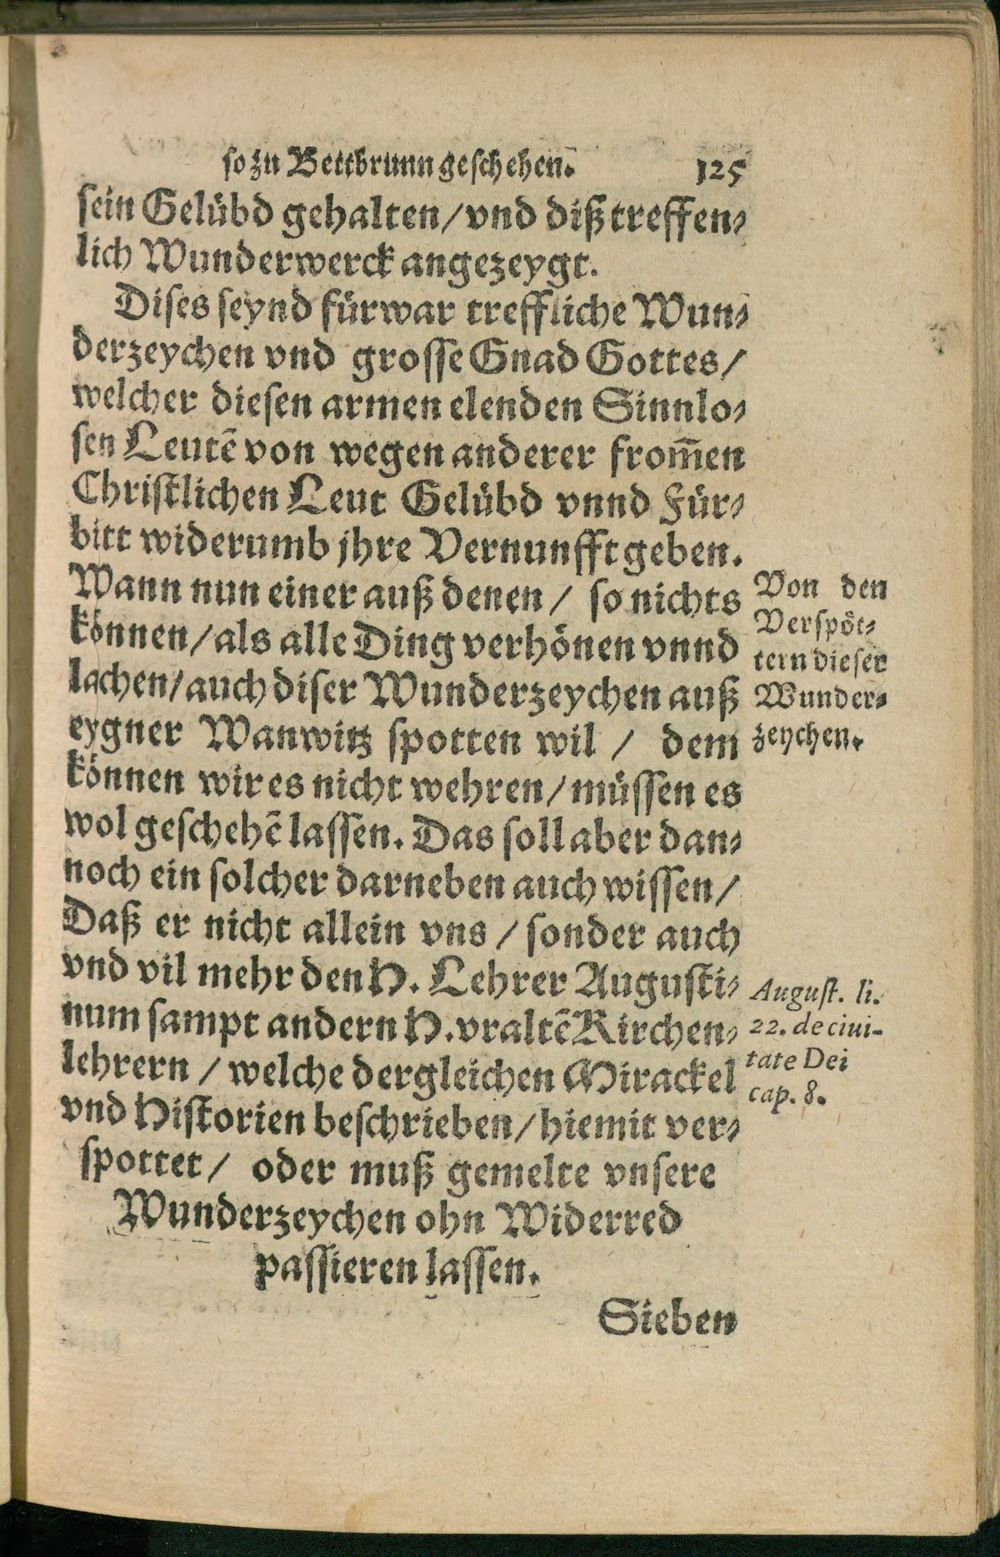 so zu Bettbrunn geschehen. 125
sein Gelübd gehalten/vnd diß treffen⸗
lich Wunderwerck angezeygt.
Dises seynd fürwar treffliche Wun⸗
derzeychen vnd grosse Gnad Gottes/
welcher diesen armen elenden Sinnlo⸗
sen Leutē von wegen anderer from̄en
Christlichen Leut Gelübd vnnd Für⸗
bitt widerumb jhre Vernunfft geben.
Wann nun einer auß denen / so nichts
können/als alle Ding verhönen vnnd
lachen/auch diser Wunderzeychen auß
eygner Wanwitz spotten wil / dem
können wir es nicht wehren/müssen es
wol geschehē lassen. Das soll aber dan⸗
noch ein solcher darneben auch wissen/
Daß er nicht allein vns / sonder auch
vnd vil mehr den H. Lehrer Augusti⸗
num sampt andern H. vraltē Kirchen⸗
lehrern / welche dergleichen Mirackel
vnd Historien beschrieben/hiemit ver⸗
spottet/ oder muß gemelte vnsere
Wunderzeychen ohn Widerred
passieren lassen.
Sieben
Von den
Verspöt⸗
tern dieser
Wunder⸗
zeychen.
August. li.
22. de ciui-
tate Dei
cap. 8.